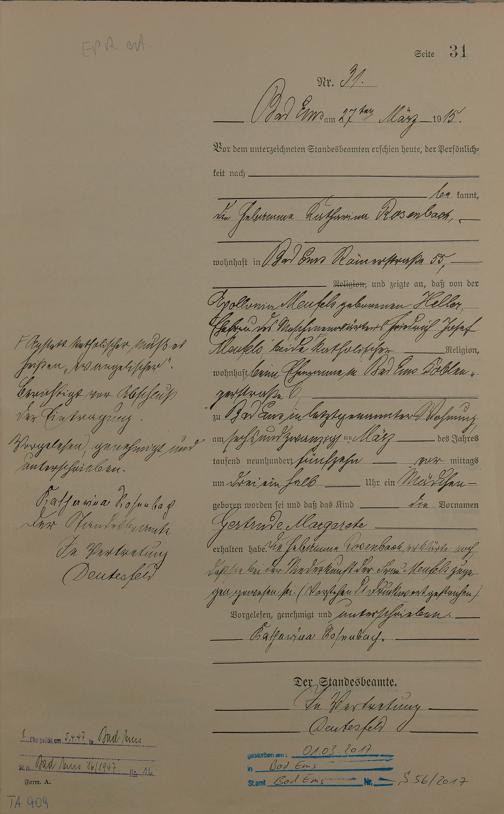 Seite 31
Nr. 31.
Bad Ems am 27ten März 1915.
Vor dem unterzeichneten Standesbeamten erschien heute, der Persönlich-
keit nach
be kannt,
die Hebamme Katharina Rosenbach,
wohnhaft in Bad Ems Römerstraße 55,
Religion, und zeigte an, daß von der
Apollonia Meufels geborenen Heller,
Ehefrau des Josef
Meufels beide katholischer Religion,
wohnhaft beim Ehemanne Bad Ems Coblen-
zerstraße
zu Bad Ems in letztgenannter Wohnung
am sechsundzwanzigsten März des Jahres
tausend neunhundert fünfzehn vor mittags
um drei ein halb Uhr ein Mädchen
geboren worden sei und daß das Kind die Vornamen
Gertrude Margarete
erhalten habe. Die Hebamme Rosenbach erklärte noch
daß sie bei der Niederkunft der Meufels zuge-
gen gewesen sei. (Vorstehend Druckwort gestrichen)
Vorgelesen, genehmigt und unterschrieben.
Katharina Rosenbach.
Der Standesbeamte.
In Vertretung
Anstatt katholischer muß es
heißen "evangelischer".
Berichtigt vor Abschluß
der Eintragung.
Vorgelesen, genehmigt und
unterschrieben.
Katharina Rosenbach
Der Standesbeamte
In Vertretung
5.4.47 in Bad Ems
Bad Ems 26/1947
Form. A.
TA 909
gestorben am: 01.03.2017
in Bad Ems
StAmt Bad Ems Nr. S 56/2017